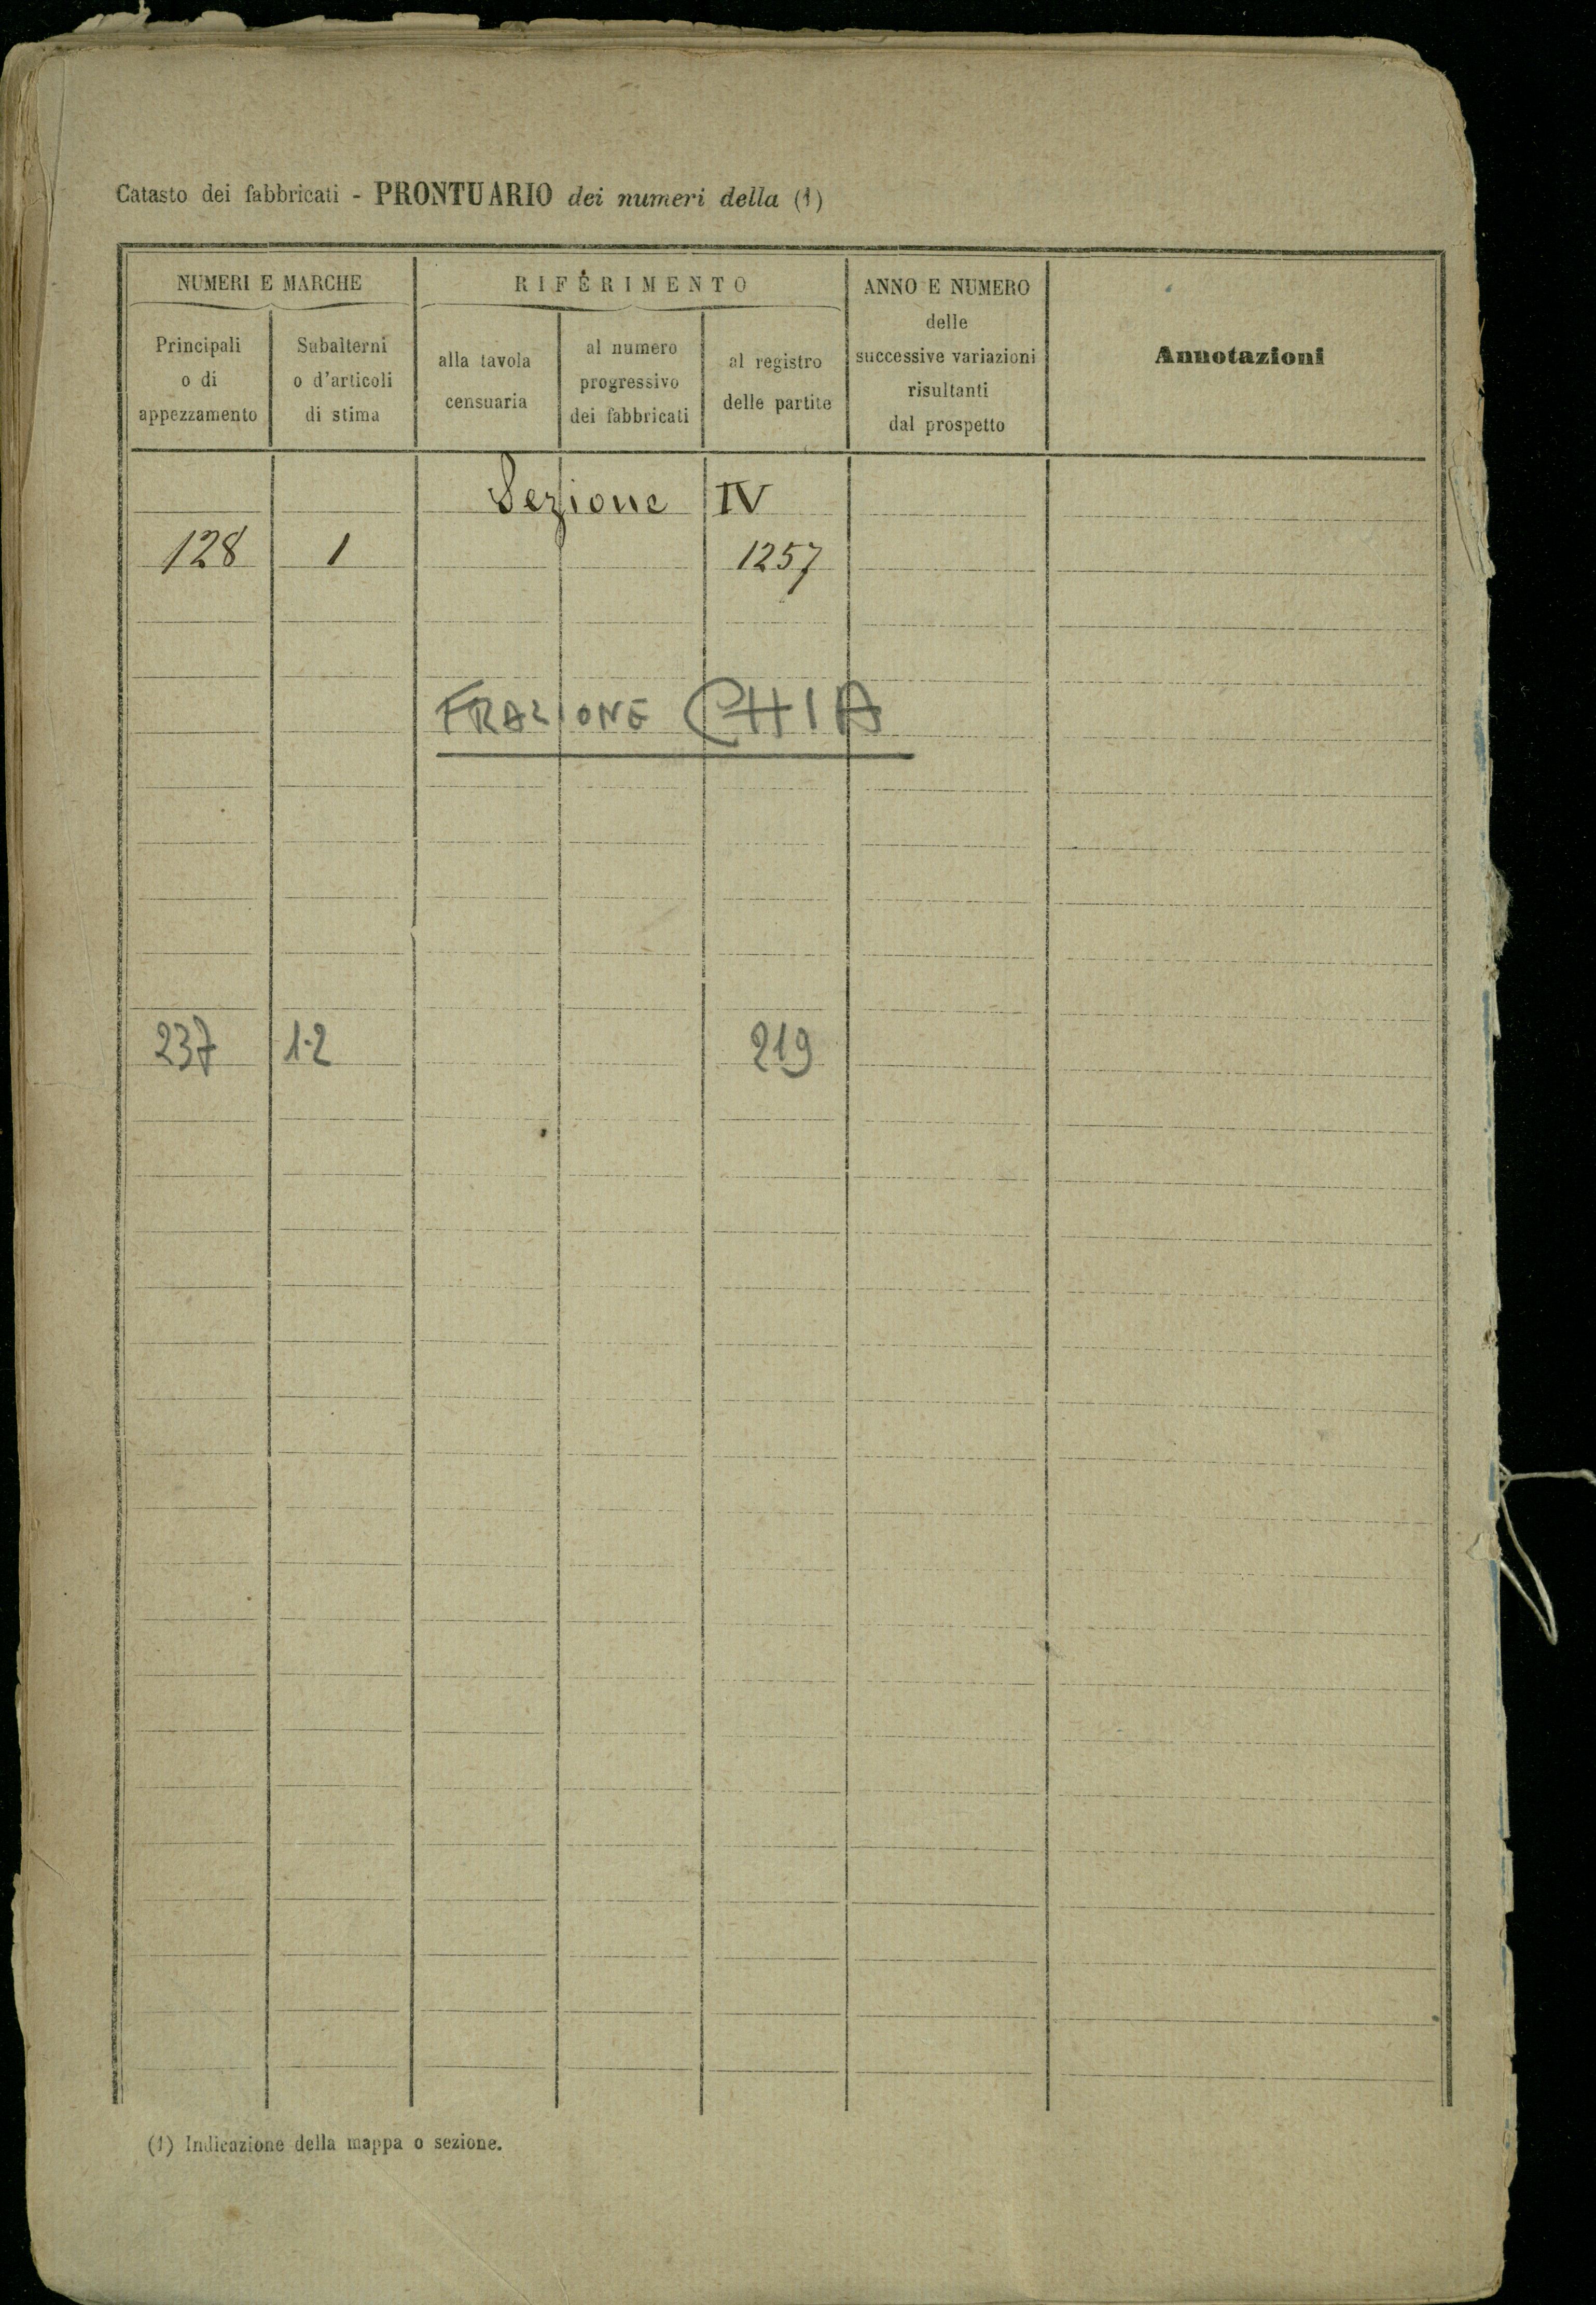 Catasto dei fabbricati - PRONTUARIO dei numeri della (1)
NUMERI E MARCHE
RIFERIMENTO
ANNO E NUMERO
delle
successive variazioni
risultanti
dal prospetto
Annotazioni
Principali
o di
appezzamento
Subalterni
o d'articoli
di stima
alla tavola
censuaria
al numero
progressivo
dei fabbricati
al registro
delle partite
Sezione IV
128 1 1257
FRAZIONE CHIA
237 1-2 219
(1) Indicazione della mappa o sezione.